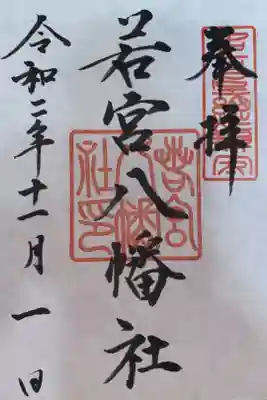 奉拝
若宮八幡社
令和二年十一月一日
若宮八幡社印